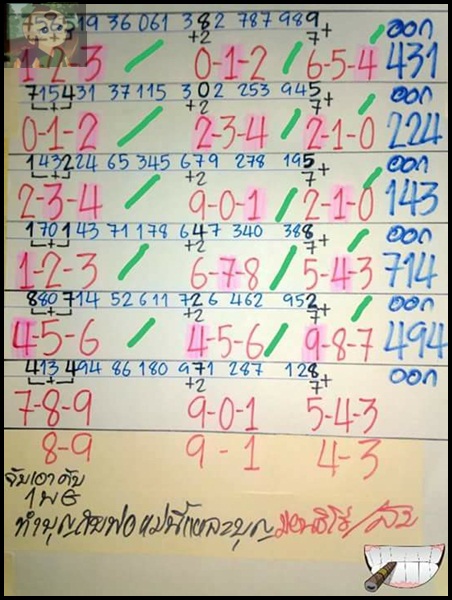 519 36 061 382 787 989 ออก
+2 7+
1-2-3 / 0-1-2 / 6-5-4 / 431
715431 37115 302 253 945 ออก
+ +2 7+
0-1-2 / 2-3-4 / 2-1-0 / 224
143224 65 345 679 278 195 ออก
+ +2 7+
2-3-4 / 9-0-1 / 2-1-0 / 143
170143 71 178 647 340 388 ออก
+ +2 7+
1-2-3 / 6-7-8 / 5-4-3 / 714
880714 52 611 726 462 952 ออก
+ +2 7+
4-5-6 / 4-5-6 / 9-8-7 / 494
413494 86 180 971 287 128 ออก
+ +2 7+
7-8-9 9-0-1 5-4-3
8-9 9-1 4-3
จับเอาคับ
ทำบุญกับพ่อแม่นี้แหละบุญ